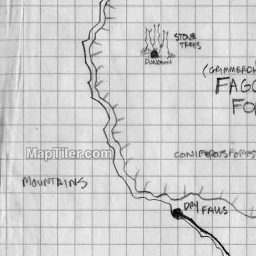 STONE
TREES
DUNGEON
(GRIMMERO
FAGO
FO
MapTiler.com
CONIFEROUS FORES
MOUNTAINS
DRY FALLS